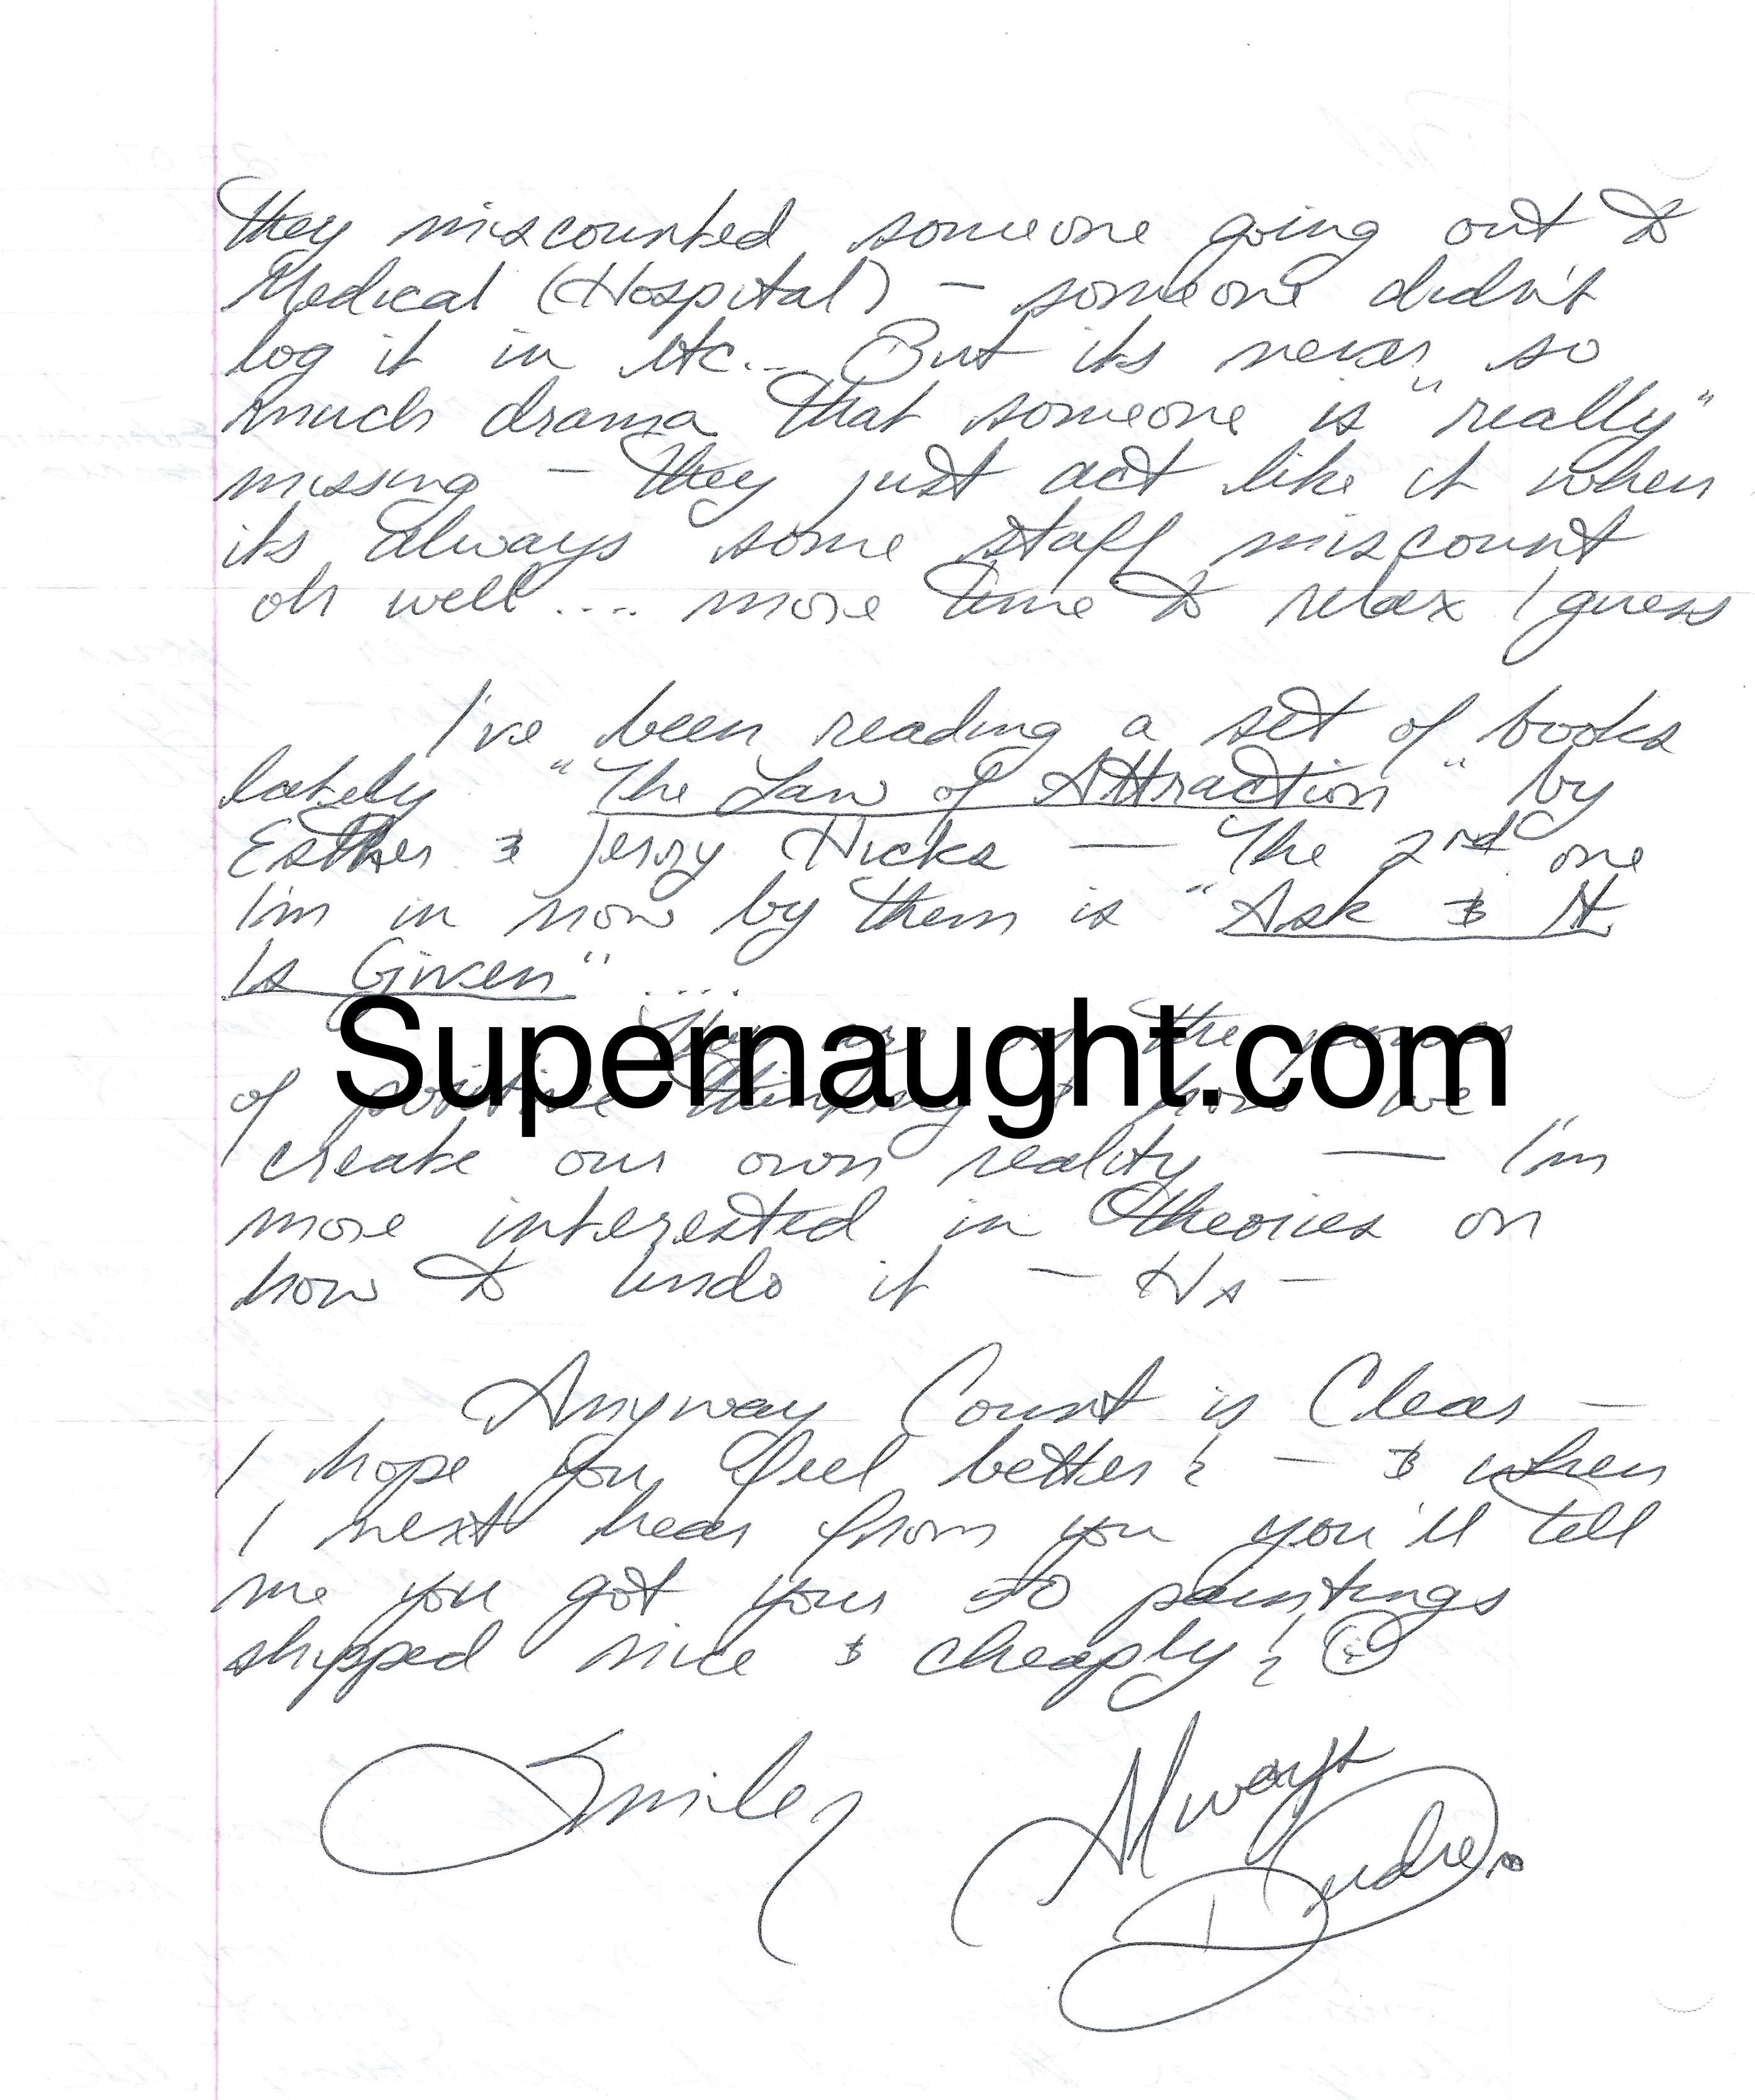 they miscounted someone going out to
Medical (Hospital) — someone didn't
log it in etc... But its never so
much drama that someone is "really"
missing — they just act like it when
its always some staff miscount
oh well .... more time to relax I guess
I've been reading a set of books
lately "The Law of Attraction" by
Esther & Jerry Hicks — The 2nd one
I'm in now by them is "Ask & It
Is Given" ....
They are on the power
Supernaught.com
of positive thinking & how we
create our own reality — I'm
more interested in theories on
how to undo it — Ha —
Anyway Count is Clear —
I hope you feel better! — & when
I next hear from you you'll tell
me you got your 20 paintings
shipped nice & cheaply! ☺
Smile, Always
Deidre